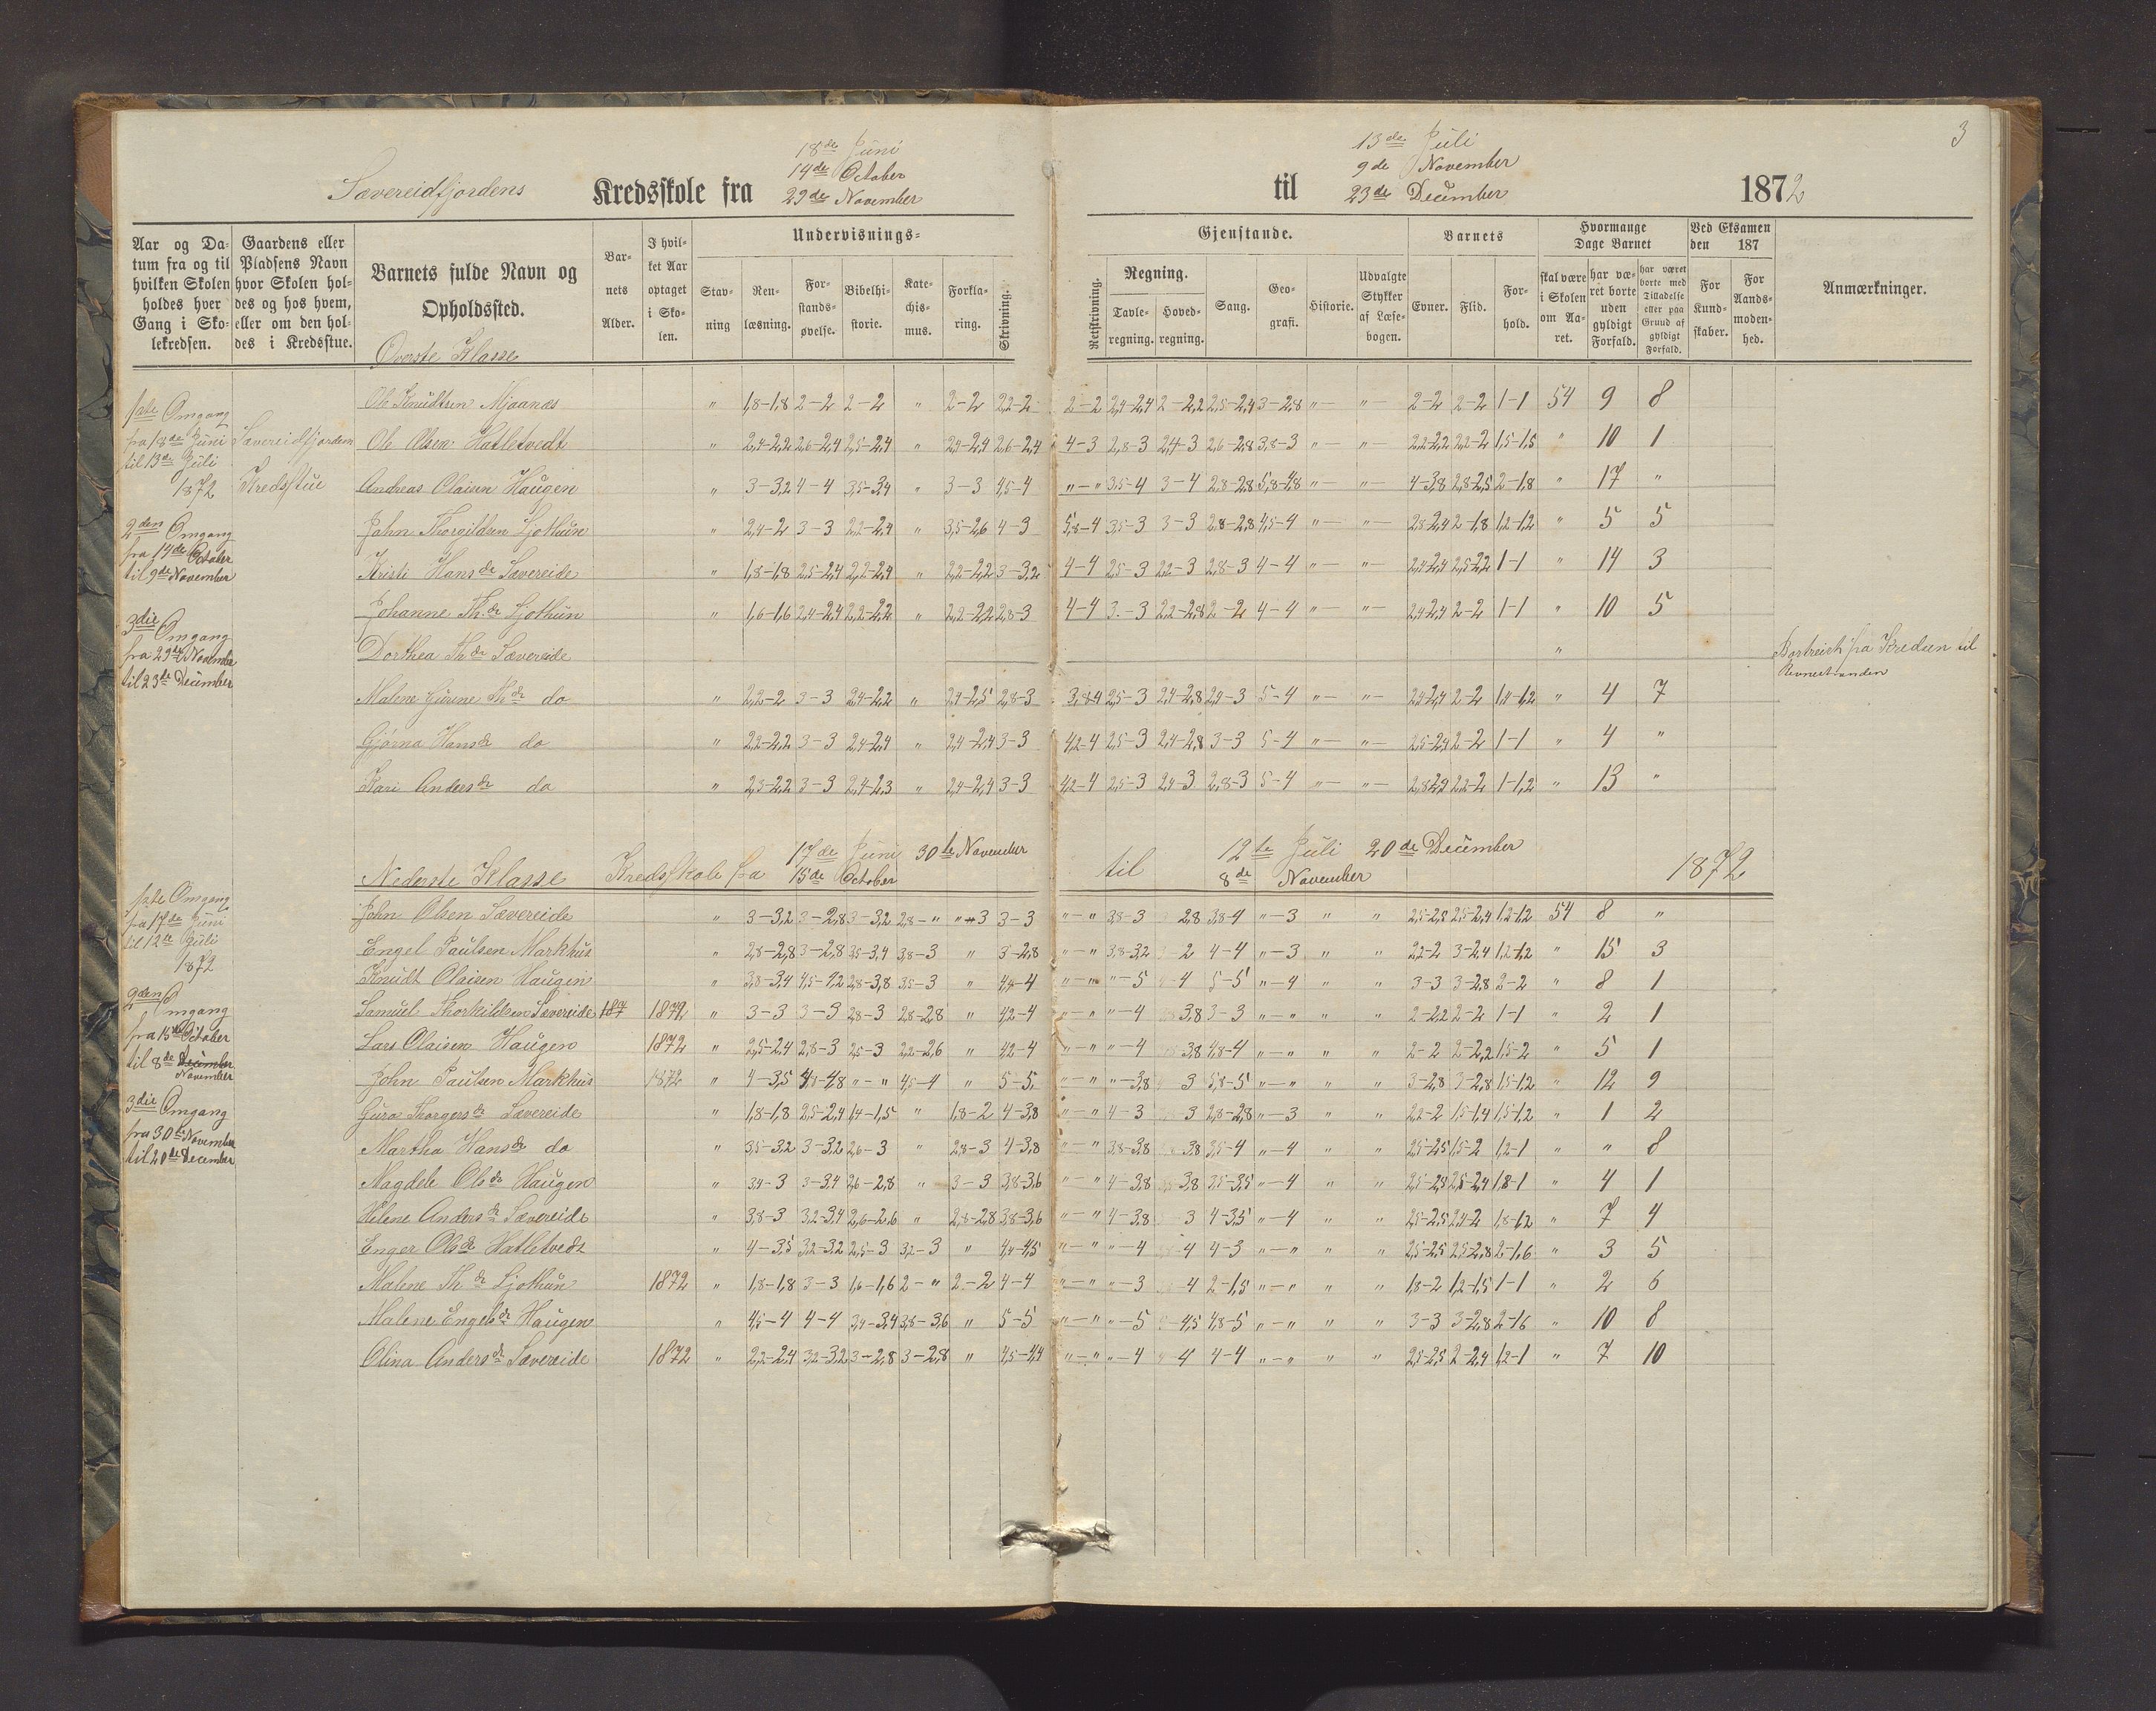 3
18de Juni 13de Juli
14de October 9de November
Sævereidfjordens Kredsskole fra 29de November til 23de December 1872
Aar og Datum fra og til hvilken Skolen holdes hver Gang i Skolekredsen.
Gaardens eller Pladsens Navn hvor Skolen holdes og hos hvem, eller om den holdes i Kredsstue.
Barnets fulde Navn og Opholdssted.
Barnets Alder.
I hvilket Aar optaget i Skolen.
Undervisnings-Gjenstande.
Stavning
Renlæsning.
Forstandsøvelse.
Bibelhistorie.
Katechismus.
Forklaring.
Skrivning.
Retskrivning.
Regning.
Tavleregning.
Hovedregning.
Sang.
Geografi.
Historie.
Udvalgte Stykker af Læsebogen.
Barnets
Evner.
Flid.
Forhold.
Hvormange Dage Barnet
skal være i Skolen om Aaret.
har været borte uden gyldigt Forfald.
har været borte med Tilladelse eller paa Grund af gyldigt Forfald.
Ved Eksamen den 187
For Kundskaber.
For Aandsmodenhed.
Anmærkninger.
Øverste Klasse
1ste Omgang
fra 18de Juni
til 13de Juli
1872
Sævereidfjorden
Kredsstue
2den Omgang
fra 14de October
til 9de November
3die Omgang
fra 29de November
til 23de December
Ole Knudtsen Mjaanæs " 1,8-1,8 2-2 2-2 " 2-2 2,2-2 2-2 2,4-2,4 2-2,2 2,5-2,4 3-2,8 "- "- 2-2 2-2 1-1 54 9 8
Ole Olsen Hatletvedt " 2,4-2,2 2,6-2,4 2,5-2,4 " 2,4-2,4 2,6-2,4 4-3 2,8-3 2,4-3 2,6-2,8 3,8-3 "- "- 2,2-2,2 2,2-2 1,5-1,5 " 10 1
Andreas Olaisen Haugen " 3-3,2 4-4 3,5-3,4 " 3-3 4,5-4 "-" 3,5-4 3-4 2,8-2,8 5,8-4,8 "- "- 4-3,8 2,8-2,5 2-1,8 " 17 "
John Thorgildsen Ljothun " 2,4-2 3-3 2,2-2,4 " 3,5-2,6 4-3 5,8-4 3,5-3 3-3 2,8-2,8 4,5-4 "- "- 2,8-2,4 2-1,8 1,2-1,2 " 5 5
Kristi Hansdr Sævereide " 1,8-1,8 2,5-2,4 2,2-2,4 " 2,2-2,2 3-3,2 4-4 2,5-3 2,2-3 2,8-3 4-4 "- "- 2,4-2,4 2,5-2,2 1-1 " 14 3
Johanne Th.dr Ljothun " 1,6-1,6 2,4-2,4 2,2-2,2 " 2,2-2,2 2,8-3 4-4 3-3 2,2-2,8 2-2 4-4 "- "- 2,4-2,4 2-2 1-1 " 10 5
Dorthea Thdr Sævereide " Bortreist fra Kredsen til
Malene Gurine Thdr do " 2,2-2 3-3 2,4-2,2 " 2,4-2,5 2,8-3 3,8-4 2,5-3 2,4-2,8 2,4-3 5-4 "- "- 2,4-2,4 2-2 1,4-1,2 " 4 7
Gjørna Hansdr do " 2,2-2,2 3-3 2,4-2,4 " 2,4-2,4 3-3 4,2-4 2,5-3 2,4-2,8 3-3 5-4 "- "- 2,5-2,4 2-2 1-1 " 4 "
Kari Andersdr do " 2,3-2,2 3-3 2,4-2,3 " 2,4-2,4 3-3 4,2-4 2,5-3 2,4-3 2,8-3 5-4 "- "- 2,8-2,2 2,2-2 1-1,2 " 13 "
17de Juni 30te November 12te Juli 20de December
Nederste Klasse Kredsskole fra 15de October til 8de November 1872
1ste Omgang
fra 17de Juni
til 12te Juli
1872
2den Omgang
fra 15de October
til 8de December
November
3die Omgang
fra 30te November
til 20de December
John Olsen Sævereide " 3-3,2 3-2,8 3-3,2 2,8-" "-3 3-3 "-" 3,8-3 2,8 3,8-4 "-3 " " 2,5-2,5 2,5-2,4 1,2-1,2 54 8 "
Engel Paulsen Markhus " 2,8-2,8 3-2,8 3,5-3,4 3,8-3 " 3-2,8 "-" 3,8-3,2 2 4-4 "-3 " " 2,2-2 3-2,4 1,2-1,2 " 15 3
Knudt Olaisen Haugen " 3,8-3,4 4,5-4,2 2,8-3,8 3,5-3 " 4,4-4 "-" "-5 4 5-5 "-4 " " 3-3 3-2,8 2-2 " 8 1
Samuel Thorkildsen Sævereide 1872 " 3-3 3-3 2,8-3 2,8-2,8 " 4,2-4 "-" "-4 3,8 3-3 "-" " " 2-2,2 2-2 1-1 " 2 1
Lars Olaisen Haugen 1872 " 2,5-2,4 2,8-3 2,5-3 2,2-2,6 " 4,2-4 "-" "-4 3,8 4,8-4 "-" " " 2-2 2-2,2 1,5-2 " 5 1
John Paulsen Markhus 1872 " 4-3,5 4,5-4,8 "-" 4,5-4 " 5-5 "-" "-3,8 3 5,8-5 "-" " " 3-2,8 3-2,8 1,5-1,2 " 12 9
Guro Thorgersdr Sævereide " 1,8-1,8 2,5-2,4 1,4-1,5 " 1,8-2 4-3,8 "-" 4-3 3 2,8-2,8 "-3 " " 2,2-2 1,5-1,4 1,5-1,2 " 1 2
Martha Hansdr do " 3,5-3,2 3-3,2 2,6-3 " 2,8-3 4-3,8 "-" 3,8-3,8 3,8 3,5-4 "-4 " " 2,5-2,5 1,5-2 1,2-1 " " 8
Magdele Olsdr Haugen " 3,4-3 3-3,4 2,6-2,8 " 3-3 3,8-3,6 "-" 4-3,8 3,8 3,5-3,5 "-4 " " 2,5-2,5 2,5-2,4 1,8-1 " 4 1
Helene Andersdr Sævereide " 3,8-3 3,2-3,4 2,6-2,6 " 2,8-2,8 3,8-3,6 "-" 4-3,8 3 4-3,5 "-4 " " 2,5-2,5 2,4-2 1,8-1,2 " 7 4
Enger Olsdr Hatletvedt " 4-3,5 3,2-3,2 2,5-3 3,2-3 " 4,4-4,5 "-" "-4 4 4-3 "-" " " 2,5-2,5 2,5-2,8 2-1,6 " 3 5
Malene Thdr Ljothun 1872 " 1,8-1,8 3-3 1,6-1,6 2-" 2-2 4-4 "-" "-3 4 2-1,5 "-" " " 1,8-2 1,2-1,5 1-1 " 2 6
Malene Engelsdr Haugen " 4,5-4 4-4 3,4-3,4 3,8-3,6 " 5-5 "-" "-5 4,5 4,8-5 "-" " " 3-3 3-2,8 2-1,6 " 10 8
Olina Andersdr Sævereide 1872 " 2,2-2,4 3,2-3,2 3-2,8 3-2,8 " 4,5-4,4 "-" "-4 4 4-4 "-" " " 2,5-2,5 2-2,4 1,2-1 " 7 10